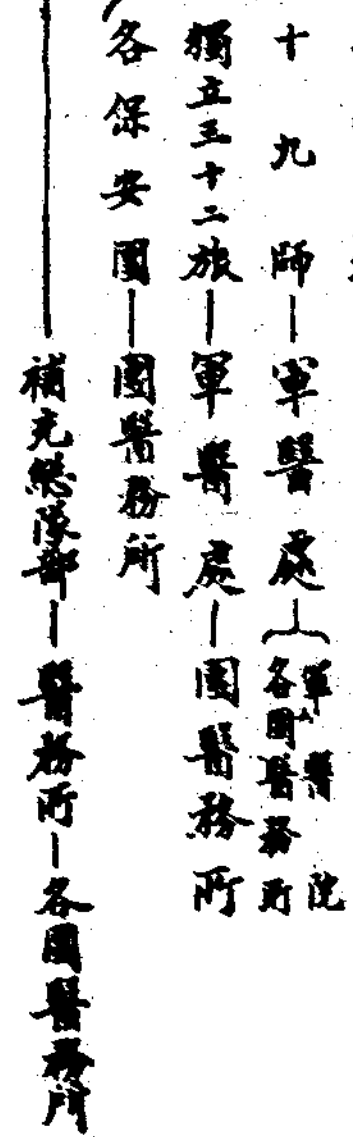 十九師—軍醫處—軍醫院
各團醫務所
獨立三十二旅—軍醫處—團醫務所
各保安團—團醫務所
補充總隊部—醫務所—各團醫務所